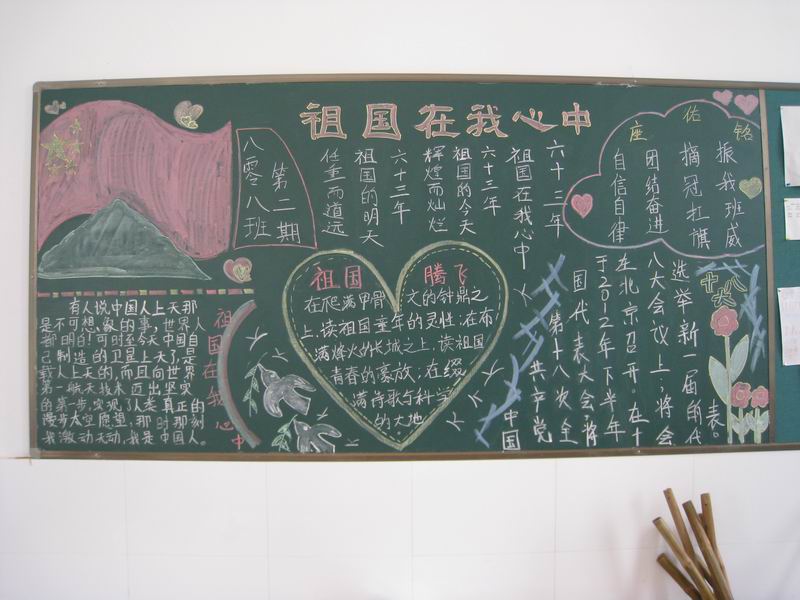 祖国在我心中
八零八班
第二期
六十三年
祖国在我心中
六十三年
祖国的今天
辉煌而灿烂
六十三年
祖国的明天
任重而道远
座佑铭
振我班威
摘冠扛旗
团结奋进
自信自律
有人说中国人上天那
是不可想象的事，世界人
都明白！可时至今天中国自
己制造的卫星上天了，是
载人上天的，而且向世界
第一航天技术迈出坚实
的第一步，实现了人类真正的
漫步太空愿望，那时那刻
我激动无动，我是中国人。
祖国在我心中
祖国 腾飞
在爬满甲骨文的钟鼎之
上，读祖国童年的灵性；在布
满烽火的长城之上，读祖国
青春的豪放；在缀
满诗歌与科学
的大地
十八大
中国
共产党
第十八次全
国代表大会将
于2012年下半年
在北京召开。在十
八大会议上；将会
选举新一届的代
表。